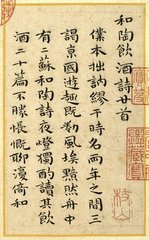 和陶飲酒詩廿首
僕本拙訥繆干時名兩年之間三
謁京國遊趣既勌風埃黯然舟中
有二蘇和陶詩夜燈獨酌讀其飲
酒二十篇不勝慨慨聊漫倚和